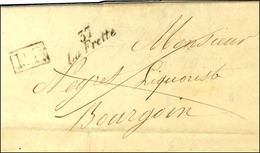 37
La Frette
Monsieur
Neyret Liquoriste
Bourgoin